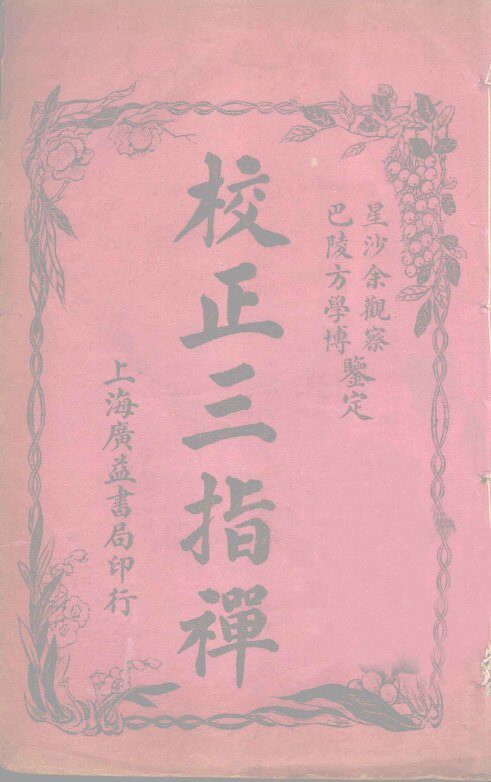 星沙余觀察
巴陵方學博
鑒定
校正三指禪
上海廣益書局印行